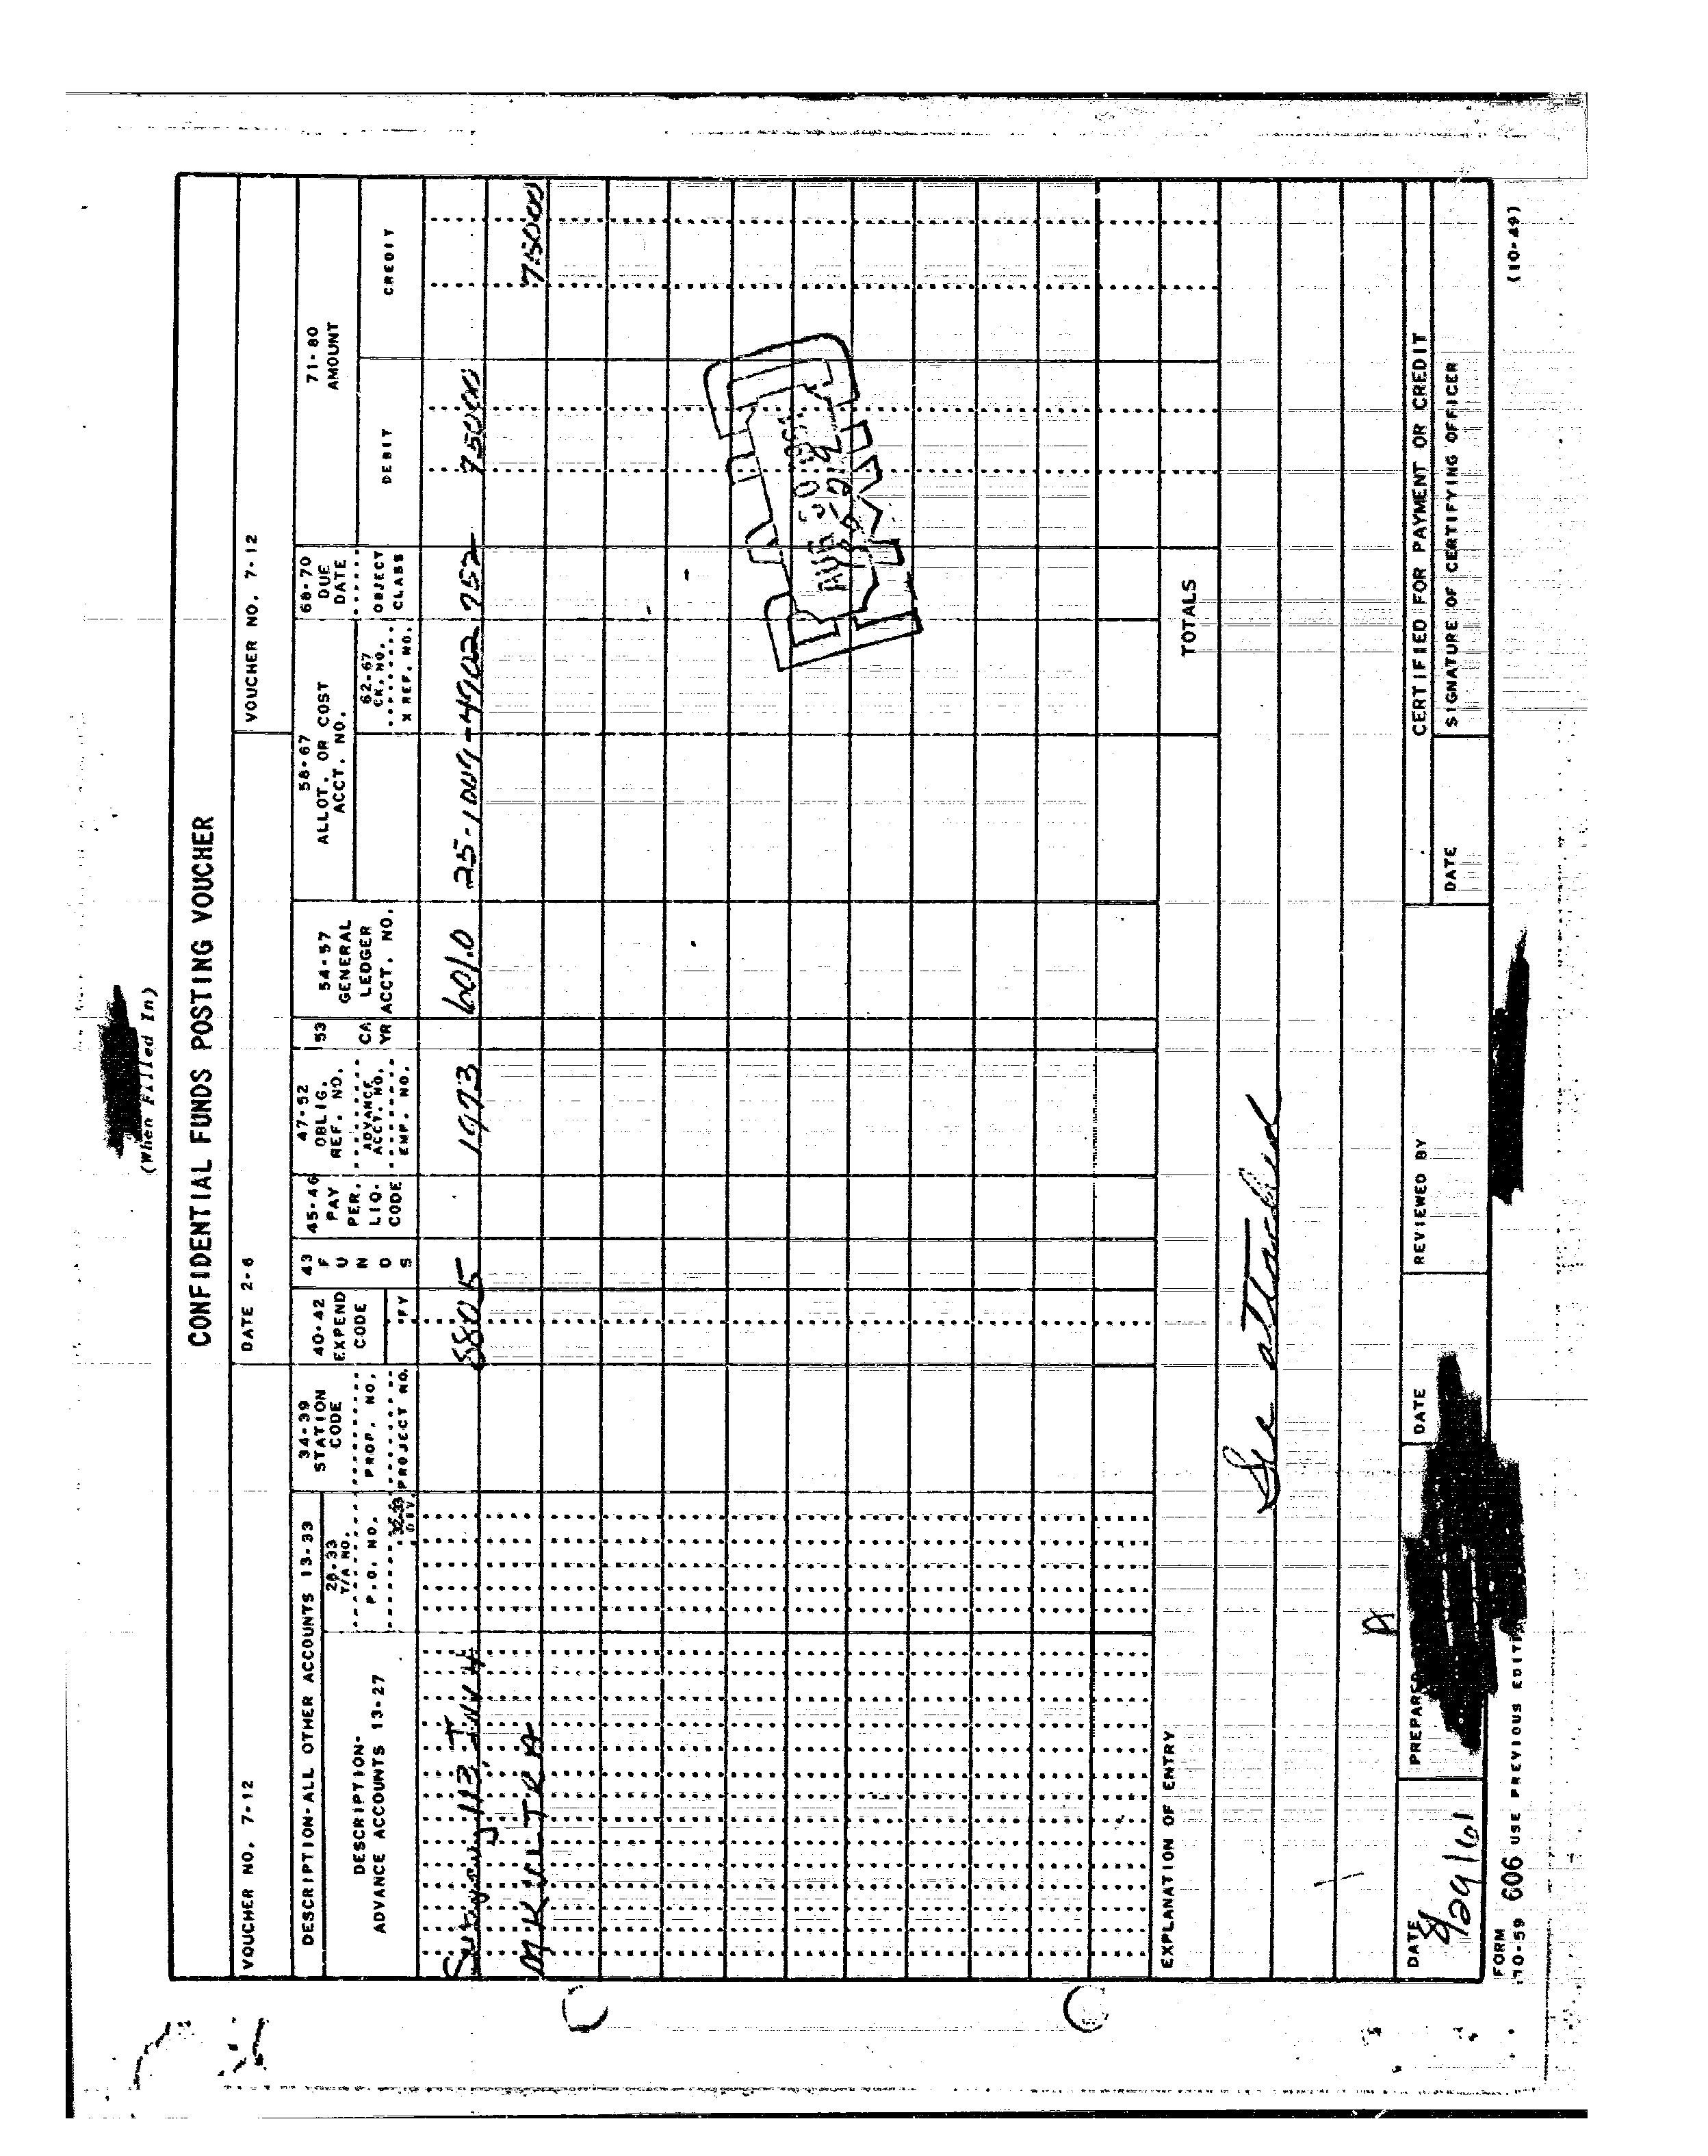 (When Filled In)
CONFIDENTIAL FUNDS POSTING VOUCHER
VOUCHER NO. 7-12 DATE 2-6 VOUCHER NO. 7-12
DESCRIPTION-ALL OTHER ACCOUNTS 13-33
DESCRIPTION-
ADVANCE ACCOUNTS 13-27
28-33
T/A NO.
P.O. NO.
32-33
DIV.
34-39
STATION
CODE
PROP. NO.
PROJECT NO.
40-42
EXPEND
CODE
FY
43
F
U
N
D
S
45-46
PAY
PER.
LIQ.
CODE
47-52
OBLIG.
REF. NO.
ADVANCE
ACCT. NO.
EMP. NO.
53
CA
YR
54-57
GENERAL
LEDGER
ACCT. NO.
58-67
ALLOT. OR COST
ACCT. NO.
62-67
CK. NO.
X REF. NO.
68-70
DUE
DATE
OBJECT
CLASS
71-80
AMOUNT
DEBIT
CREDIT
113, Inv 4 8805 1973 601.0 25-1009-4902 752 75000
MKULTRA 75000
AUG 30 1961
TOTALS
EXPLANATION OF ENTRY
See attached
DATE
8/29/61
PREPARED
DATE
REVIEWED BY
CERTIFIED FOR PAYMENT OR CREDIT
DATE
SIGNATURE OF CERTIFYING OFFICER
FORM
10-59 606 USE PREVIOUS EDITI
(10-49)